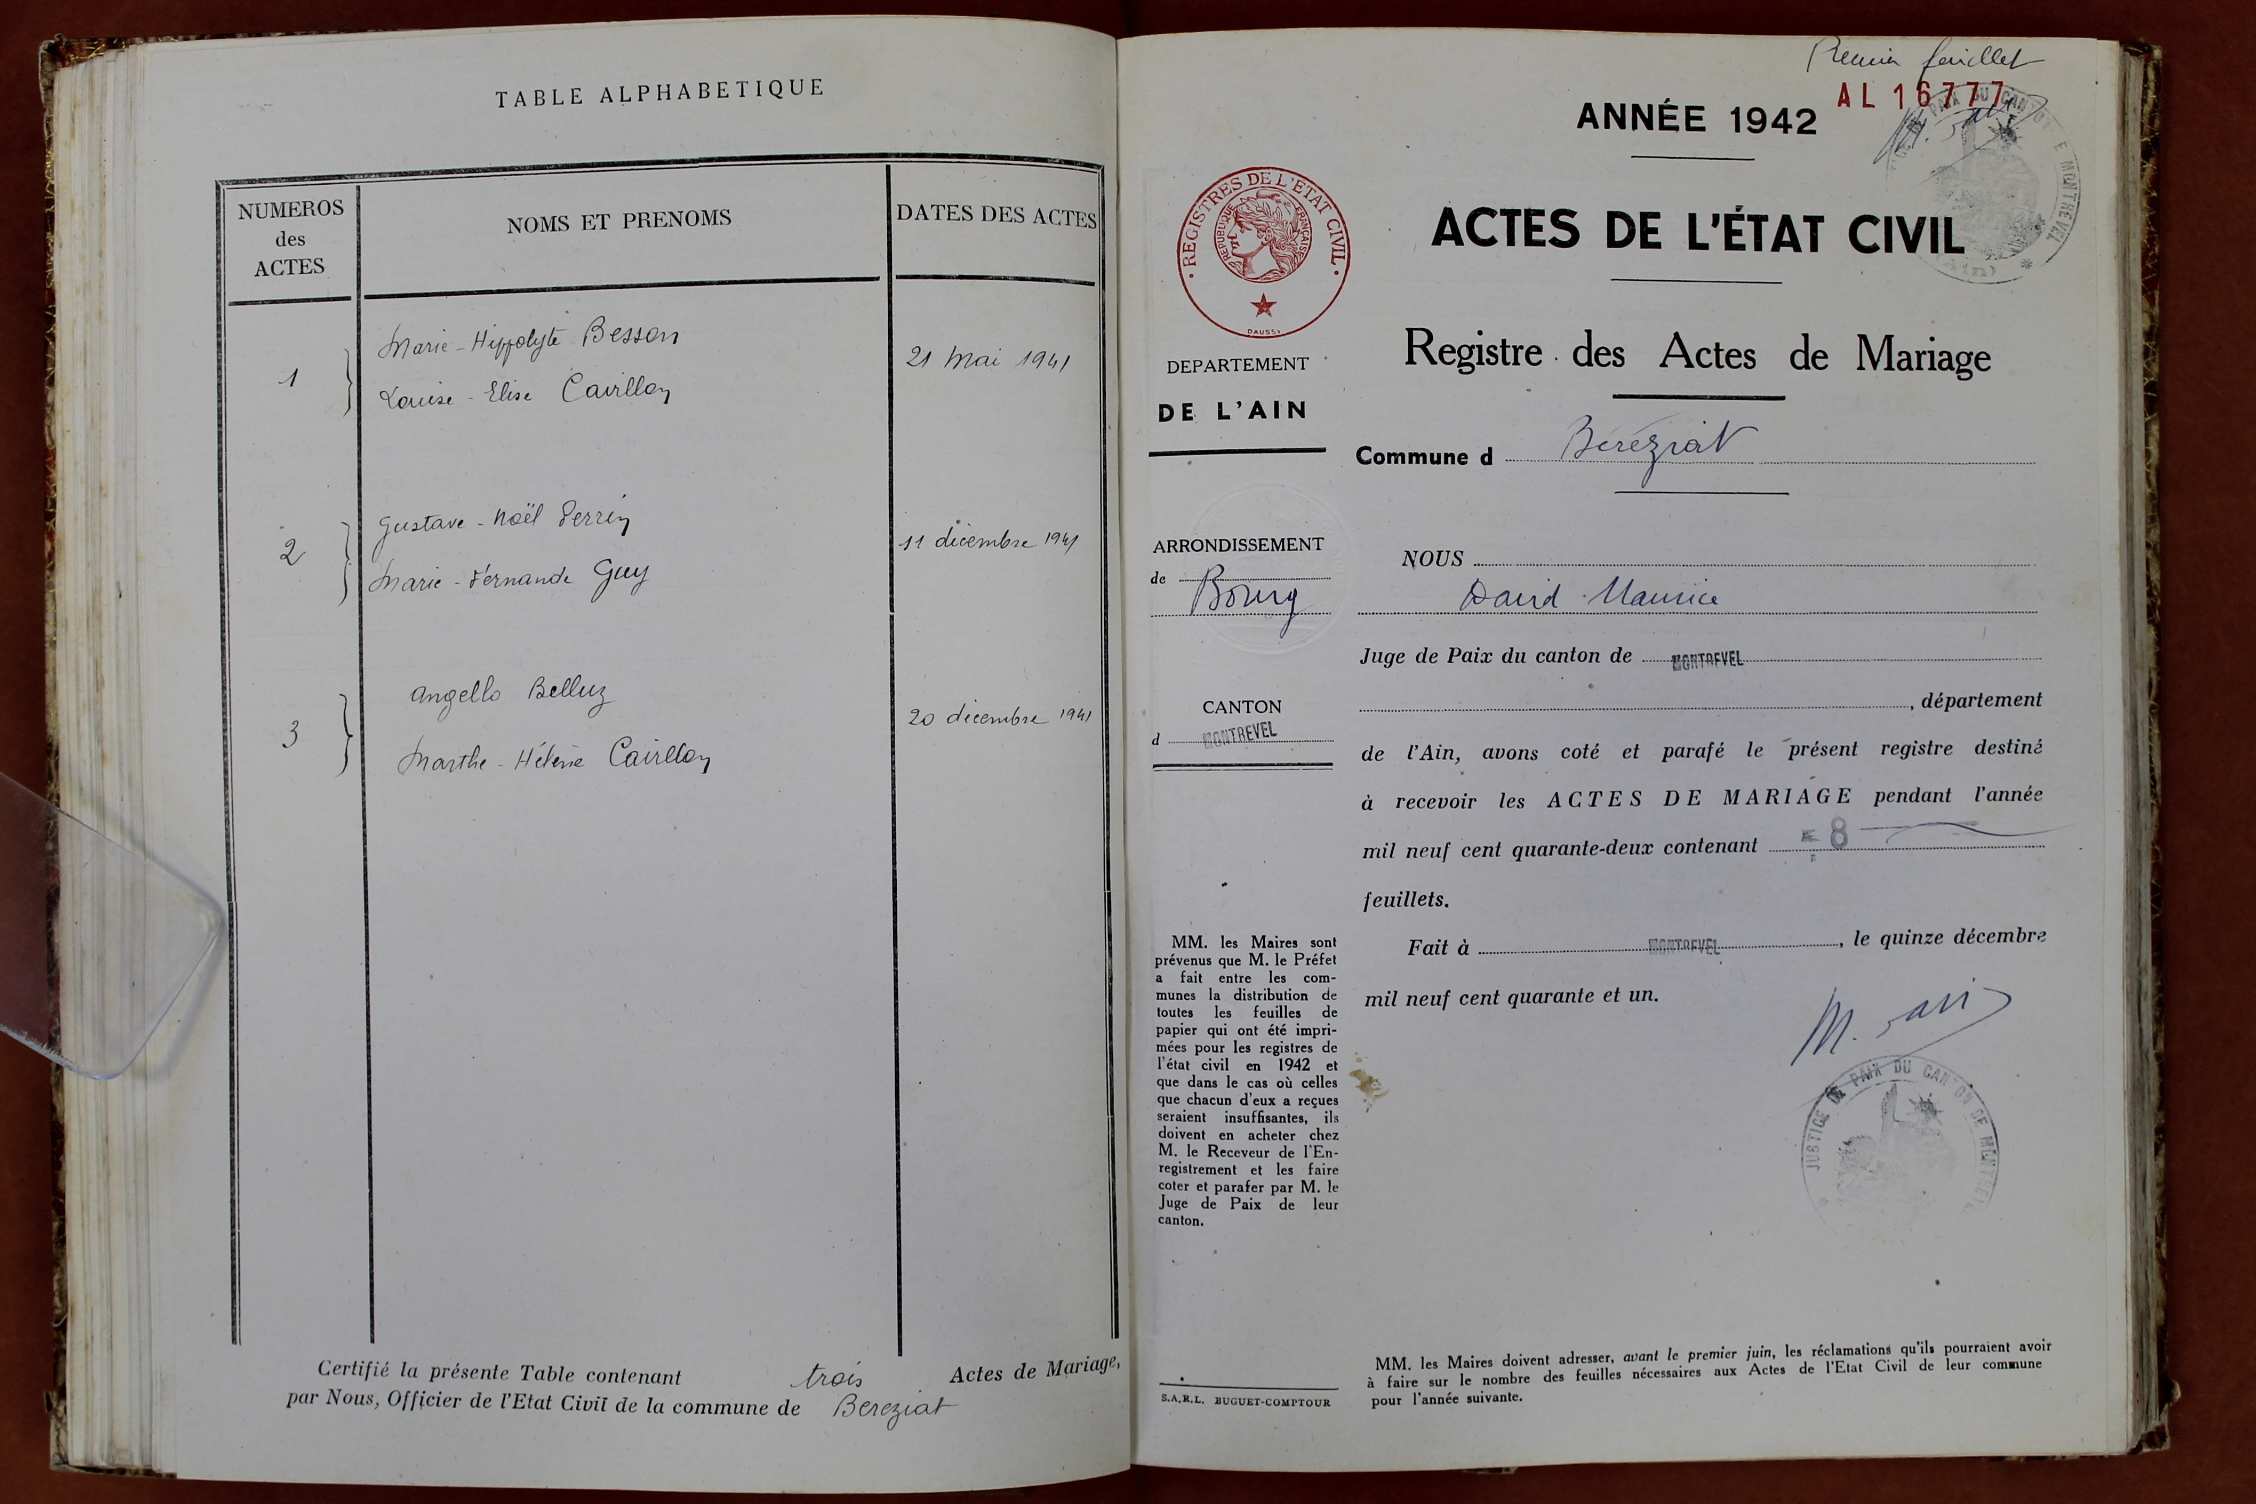 TABLE ALPHABETIQUE
NUMEROS
des
ACTES
NOMS ET PRENOMS
DATES DES ACTES
1
Marie-Hippolyte Besson
Louise-Elise Cairllon
21 Mai 1941
2
Gustave-Noël Perrin
Marie-Fernande Guy
11 décembre 1941
3
Angello Belluz
Marthe-Hélène Cairllon
20 décembre 1941
Certifié la présente Table contenant trois Actes de Mariage,
par Nous, Officier de l'Etat Civil de la commune de Bereziat
Premier feuillet
AL 16777
ANNÉE 1942
ACTES DE L'ÉTAT CIVIL
REGISTRES DE L'ETAT CIVIL
REPUBLIQUE FRANÇAISE
DAUSSY
Registre des Actes de Mariage
DEPARTEMENT
DE L'AIN
Commune d Béréziat
ARRONDISSEMENT
de
Bourg
CANTON
d MONTREVEL
NOUS
David Maurice
Juge de Paix du canton de MONTREVEL
, département
de l'Ain, avons coté et parafé le présent registre destiné
à recevoir les ACTES DE MARIAGE pendant l'année
mil neuf cent quarante-deux contenant 8
feuillets.
Fait à MONTREVEL, le quinze décembre
mil neuf cent quarante et un.
JUSTICE DE PAIX DU CANTON DE MONTREVEL
MM. les Maires sont
prévenus que M. le Préfet
a fait entre les com-
munes la distribution de
toutes les feuilles de
papier qui ont été impri-
mées pour les registres de
l'état civil en 1942 et
que dans le cas où celles
que chacun d'eux a reçues
seraient insuffisantes, ils
doivent en acheter chez
M. le Receveur de l'En-
registrement et les faire
coter et parafer par M. le
Juge de Paix de leur
canton.
S.A.R.L. BUGUET-COMPTOUR
MM. les Maires doivent adresser, avant le premier juin, les réclamations qu'ils pourraient avoir
à faire sur le nombre des feuilles nécessaires aux Actes de l'Etat Civil de leur commune
pour l'année suivante.